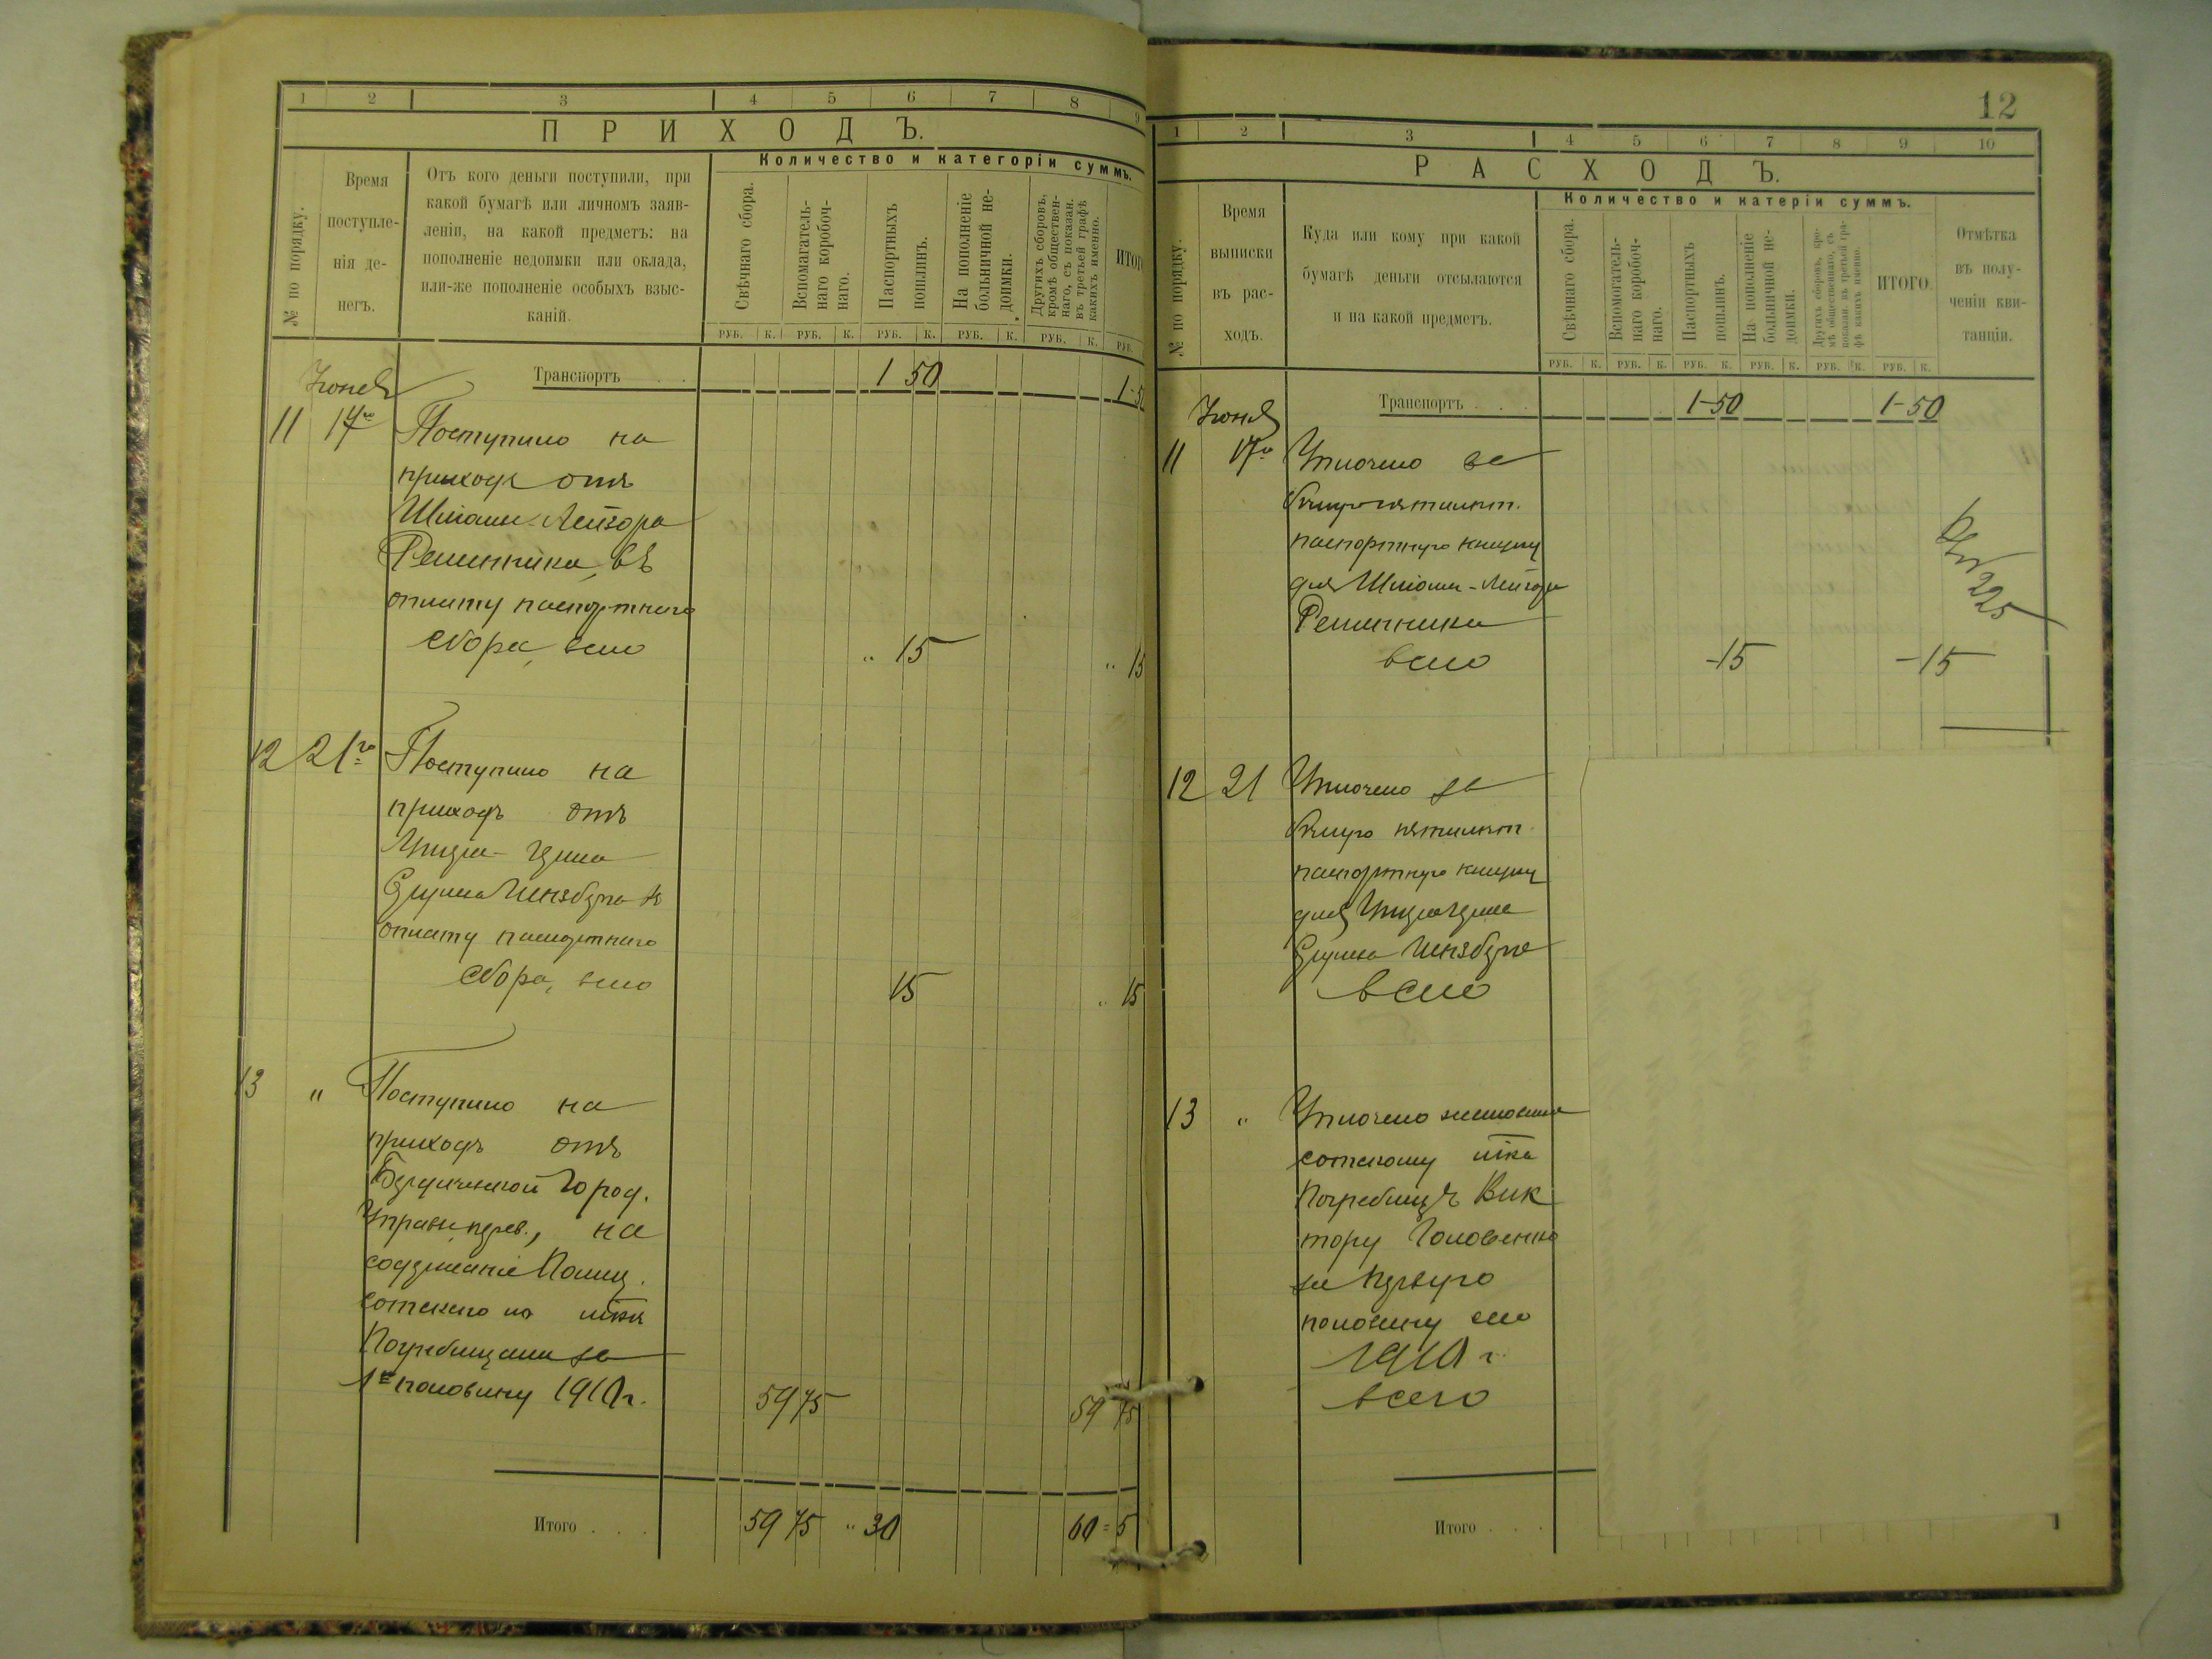 1 2 3 4 5 6 7 8 9
ПРИХОДЪ.
№ по порядку.
Время
поступле-
нія де-
негъ.
Отъ кого деньги поступили, при
какой бумагѣ или личномъ заяв-
леніи, на какой предметъ: на
пополненіе недоимки или оклада,
или-же пополненіе особыхъ взыс-
каній.
Количество и категоріи суммъ.
Свѣчнаго сбора.
Вспомагатель-
наго коробоч-
наго.
Паспортныхъ
пошлинъ.
На пополненіе
больничной не-
доимки.
Другихъ сборовъ,
кромѣ обществен-
наго, съ показан.
въ третьей графѣ
какихъ именно.
ИТОГ
РУБ. К. РУБ. К. РУБ. К. РУБ. К. РУБ. К. РУБ.
Іюня
Транспортъ . . 1 50 1-50
11 17го Поступило на
приходъ отъ
Шліомы-Лейзора
Решетника, въ
оплату паспортнаго
сбора, всего „ 15 „ 15
12 21го Поступило на
приходъ отъ
оплату паспортнаго
сбора, всего 15 „ 15
13 „ Поступило на
приходъ отъ
Бердичевской Город.
Управы, на
содержаніе Полиц.
сотскаго
Погребищами за
1ю половину 1910 г. 59 75 59 75
Итого . . . 59 75 „ 30 60 = 5
12
1 2 3 4 5 6 7 8 9 10
РАСХОДЪ.
№ по порядку.
Время
выписки
въ рас-
ходъ.
Куда или кому при какой
бумагѣ деньги отсылаются
и на какой предметъ.
Количество и катеріи суммъ.
Свѣчнаго сбора.
Вспомогатель-
наго коробоч-
наго.
Паспортныхъ
пошлинъ.
На пополненіе
больничной не-
доимки.
Другихъ сборовъ, кро-
мѣ общественнаго, съ
показан. въ третьей гра-
фѣ какихъ именно.
ИТОГО.
Отмѣтка
въ полу-
ченіи кви-
танціи.
РУБ. К. РУБ. К. РУБ. К. РУБ. К. РУБ. К. РУБ. К.
Іюня
Транспортъ . . . 1-50 1-50
11 17го Уплочено за
паспортную книжку
для Шліомы-Лейзора
Решетника
всего -15 -15
225
12 21 Уплочено за
паспортную книжку
для
всего
13 „ Уплочено
сотскому
Погребищъ Вик
тору Головенко
за первую
половину сего
1910 г.
всего
Итого . . .